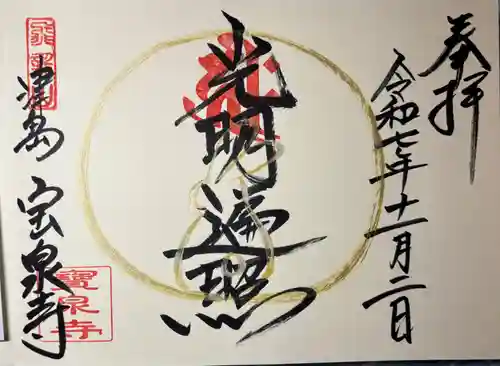 奉拝
令和七年十一月二日
光明遍照
津島 宝泉寺
寶泉寺